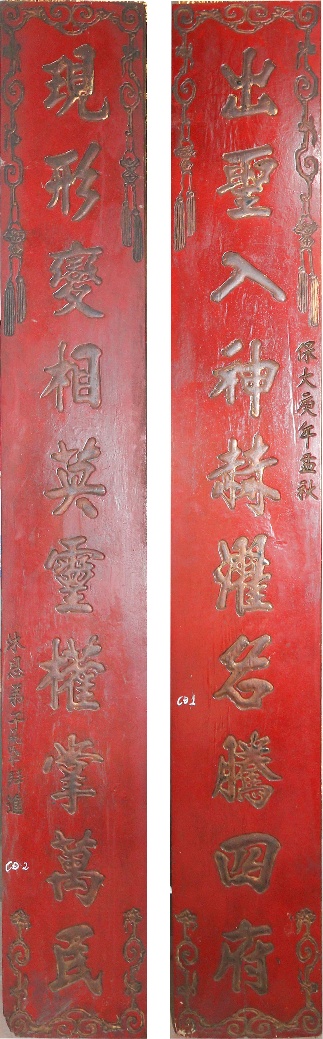 出聖入神赫濯名騰四府
保大庚午孟秋
CĐ1
現形變相英靈權掌萬民
沐恩弟子
CĐ2